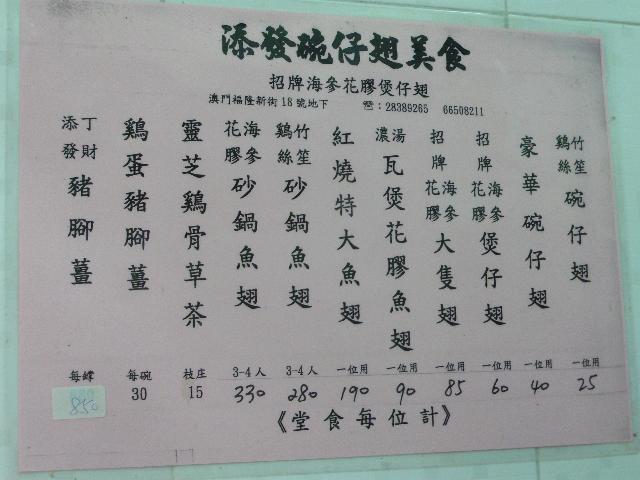 添發碗仔翅美食
招牌海參花膠煲仔翅
澳門福隆新街18號地下 ☎:28389265 66508211
竹笙鷄絲碗仔翅 一位用 25
豪華碗仔翅 一位用 40
招牌海參花膠煲仔翅 一位用 60
招牌海參花膠大隻翅 一位用 85
濃湯瓦煲花膠魚翅 一位用 90
紅燒特大魚翅 一位用 190
竹笙鷄絲砂鍋魚翅 3-4人 280
海參花膠砂鍋魚翅 3-4人 330
靈芝鷄骨草茶 枝庄 15
鷄蛋豬腳薑 每碗 30
添丁發財豬腳薑 每罉 850
《堂食每位計》